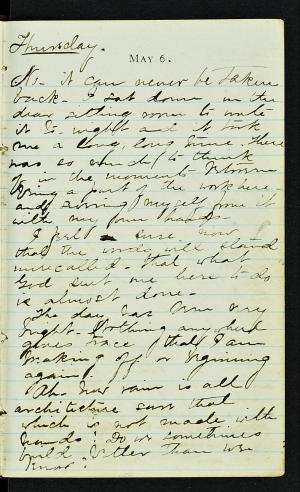 Thursday.
MAY 6.
No. it can never be taken
back. I sat down in the
dear sitting room to write
it to-night and it took
me a long, long time. There
was so much to think
of in the moment between
being a part of the work here
and cutting myself from it
with my own hands.
I feel sure now
that the words will stand
unrecalled. that what
God sent me here to do
is almost done.
The day has been very
bright. Nothing anywhere
gives trace that I am
breaking off or beginning
again!
Ah. how vain is all
architecture save that
which is not made with
hands! Do we sometimes
build better than we
know?